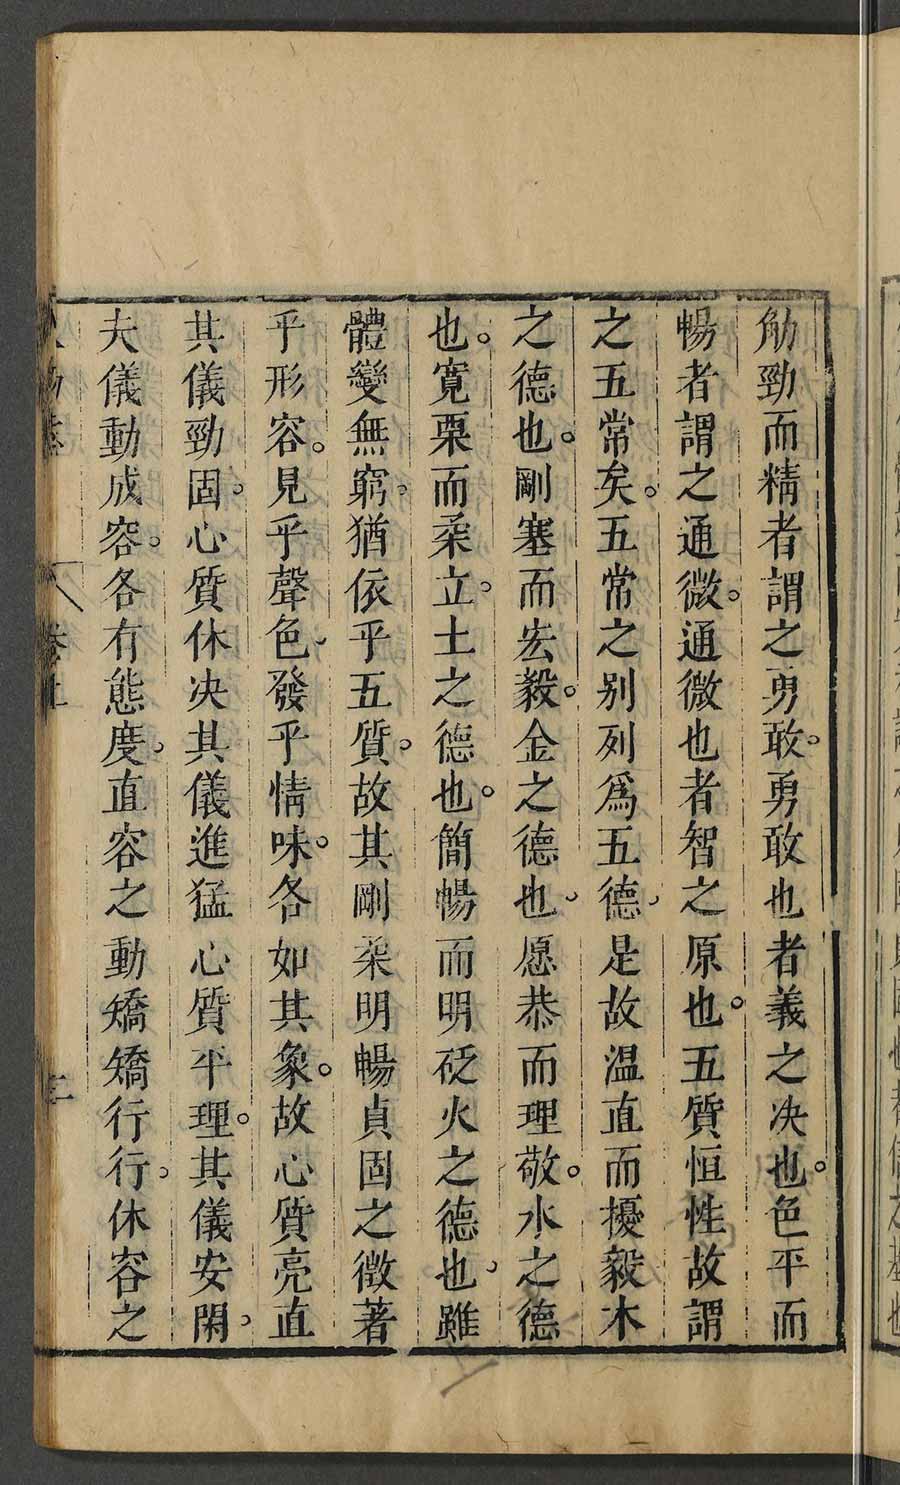 觔勁而精者謂之勇敢。勇敢也者義之决也。色平而
暢者謂之通微。通微也者智之原也。五質恒性故謂
之五常矣。五常之别列爲五德。是故温直而擾毅木
之德也。剛塞而宏毅。金之德也。愿恭而理敬。水之德
也。寬栗而柔立。土之德也。簡暢而明砭火之德也。雖
體變無窮。猶依乎五質。故其剛柔明暢貞固之徵著
乎形容。見乎聲色。發乎情味。各如其象。故心質亮直
其儀勁固。心質休决其儀進猛心質平理。其儀安閑。
夫儀動成容。各有態度。直容之動矯矯行行。休容之
人物志
卷上
三